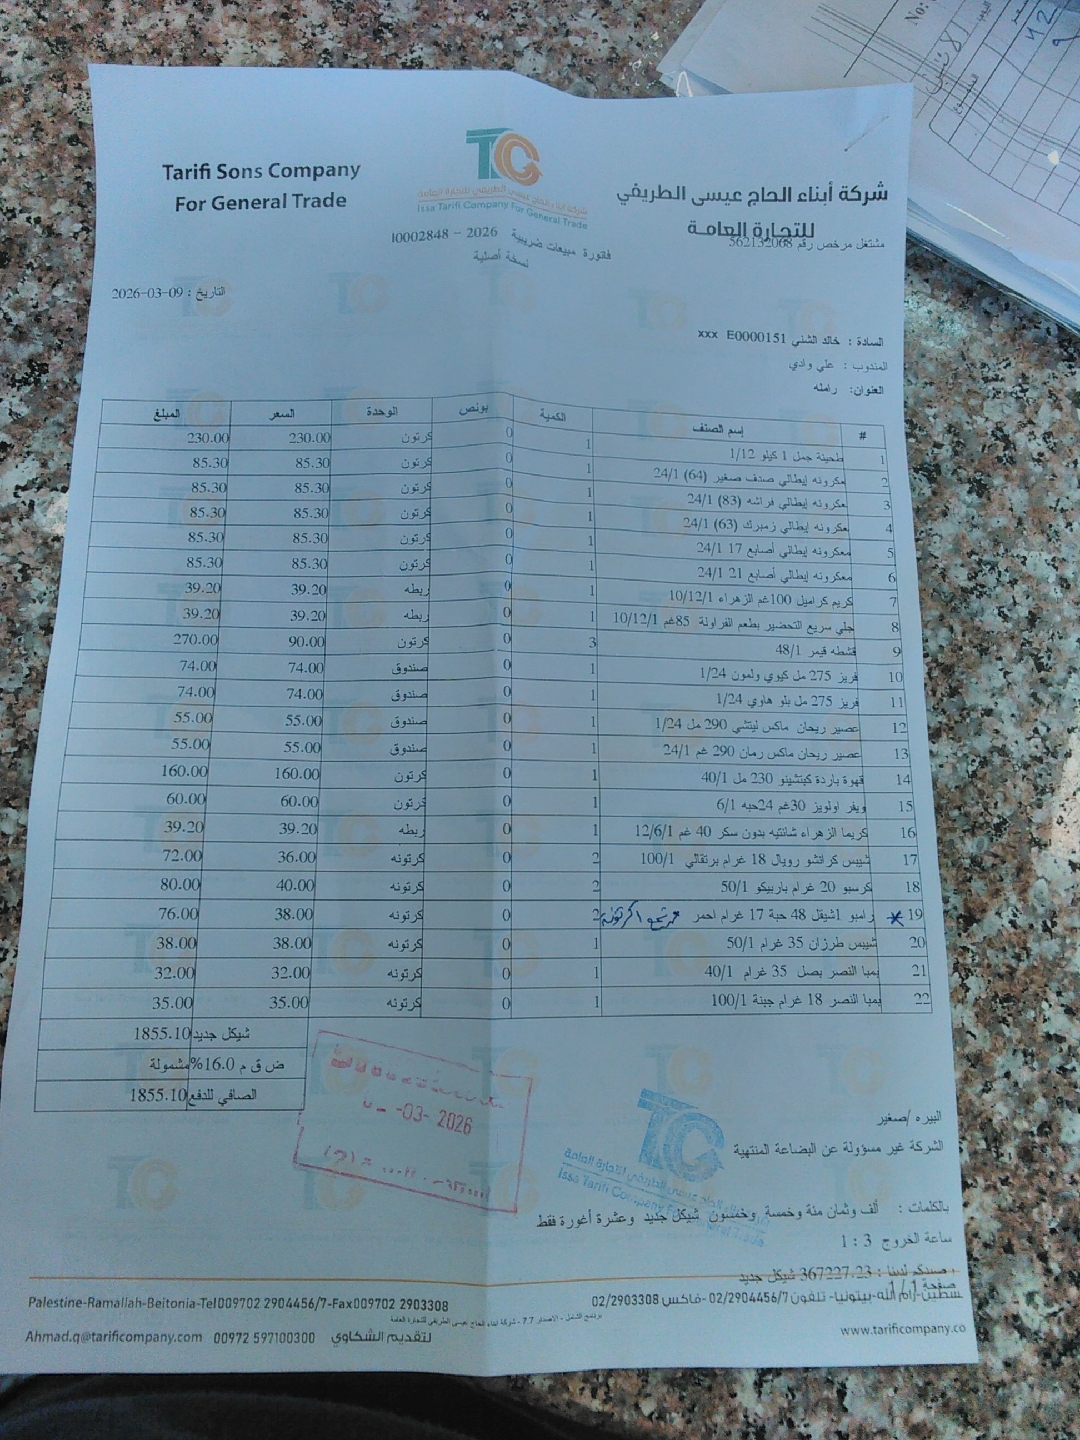 Tarifi Sons Company
For General Trade
TC
شركة أبناء الحاج عيسى الطريفي للتجارة العامة
Issa Tarifi Company For General Trade
شركة أبناء الحاج عيسى الطريفي
للتجارة العامة
مشتغل مرخص رقم 562132068
فاتورة مبيعات ضريبية 2026 - I0002848
نسخة أصلية
التاريخ : 2026-03-09
السادة : خالد الشني E0000151 xxx
المندوب : علي وادي
العنوان: رامله
# إسم الصنف الكمية بونص الوحدة السعر المبلغ
1 طحينة جمل 1 كيلو 1/12 1 0 كرتون 230.00 230.00
2 معكرونه إيطالي صدف صغير (64) 24/1 1 0 كرتون 85.30 85.30
3 معكرونه إيطالي فراشه (83) 24/1 1 0 كرتون 85.30 85.30
4 معكرونه إيطالي زمبرك (63) 24/1 1 0 كرتون 85.30 85.30
5 معكرونه إيطالي أصابع 17 24/1 1 0 كرتون 85.30 85.30
6 معكرونه إيطالي أصابع 21 24/1 1 0 كرتون 85.30 85.30
7 كريم كراميل 100غم الزهراء 10/12/1 1 0 ربطه 39.20 39.20
8 جلي سريع التحضير بطعم الفراولة 85غم 10/12/1 1 0 ربطه 39.20 39.20
9 قشطه قيمر 48/1 3 0 كرتون 90.00 270.00
10 فريز 275 مل كيوي ولمون 1/24 1 0 صندوق 74.00 74.00
11 فريز 275 مل بلو هاوي 1/24 1 0 صندوق 74.00 74.00
12 عصير ريحان ماكس ليتشي 290 مل 1/24 1 0 صندوق 55.00 55.00
13 عصير ريحان ماكس رمان 290 غم 24/1 1 0 صندوق 55.00 55.00
14 قهوة باردة كبتشينو 230 مل 40/1 1 0 كرتون 160.00 160.00
15 ويفر اولويز 30غم 24حبه 6/1 1 0 كرتون 60.00 60.00
16 كريما الزهراء شانتيه بدون سكر 40 غم 12/6/1 1 0 ربطه 39.20 39.20
17 شيبس كرانشو رويال 18 غرام برتقالي 100/1 2 0 كرتونه 36.00 72.00
18 كرسبو 20 غرام باربيكو 50/1 2 0 كرتونه 40.00 80.00
19 رامبو 1شيقل 48 حبة 17 غرام احمر 2 0 كرتونه 38.00 76.00
20 شيبس طرزان 35 غرام 50/1 1 0 كرتونه 38.00 38.00
21 بمبا النصر بصل 35 غرام 40/1 1 0 كرتونه 32.00 32.00
22 بمبا النصر 18 غرام جبنة 100/1 1 0 كرتونه 35.00 35.00
شيكل جديد 1855.10
ض ق م 16.0% مشمولة
الصافي للدفع 1855.10
-03- 2026
TC
Issa Tarifi Company For General Trade
البيره /صغير
الشركة غير مسؤولة عن البضاعة المنتهية
بالكلمات : ألف وثمان مئة وخمسة وخمسون شيكل جديد وعشرة أغورة فقط
ساعة الخروج 3 : 1
رصيدكم لدينا : 367227.23 شيكل جديد
صفحة 1 / 1
Palestine-Ramallah-Beitonia-Tel009702 2904456/7-Fax009702 2903308
فلسطين-رام الله-بيتونيا- تلفون 02/2904456/7- فاكس 02/2903308
برنامج الشامل - الاصدار 7.7 - شركة ابناء الحاج عيسى الطريفي للتجارة العامة
Ahmad.q@tarificompany.com 00972 597100300 لتقديم الشكاوي
www.tarificompany.co
No: